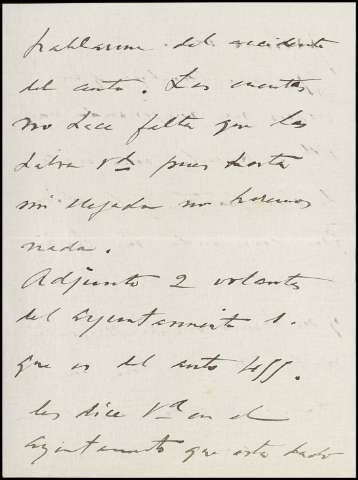 hablarme del accidente
del auto. Las cuentas
no hace falta que las
abra Vd pues hasta
mi llegada no haremos
nada.
Adjunto 2 volantes
del ayuntamiento 1.
que es del auto 455.
les dice Vd en el
Ayuntamiento que está dado